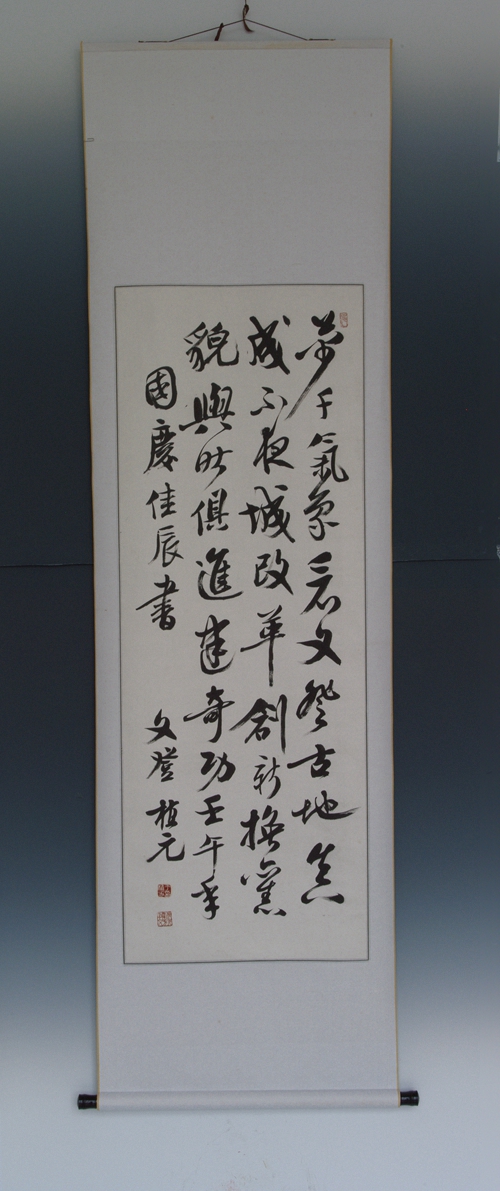 萬千氣象看文登古地真
成不夜城改革創新換舊
貌與時俱進建奇功壬午年
國慶佳辰書
文登植元